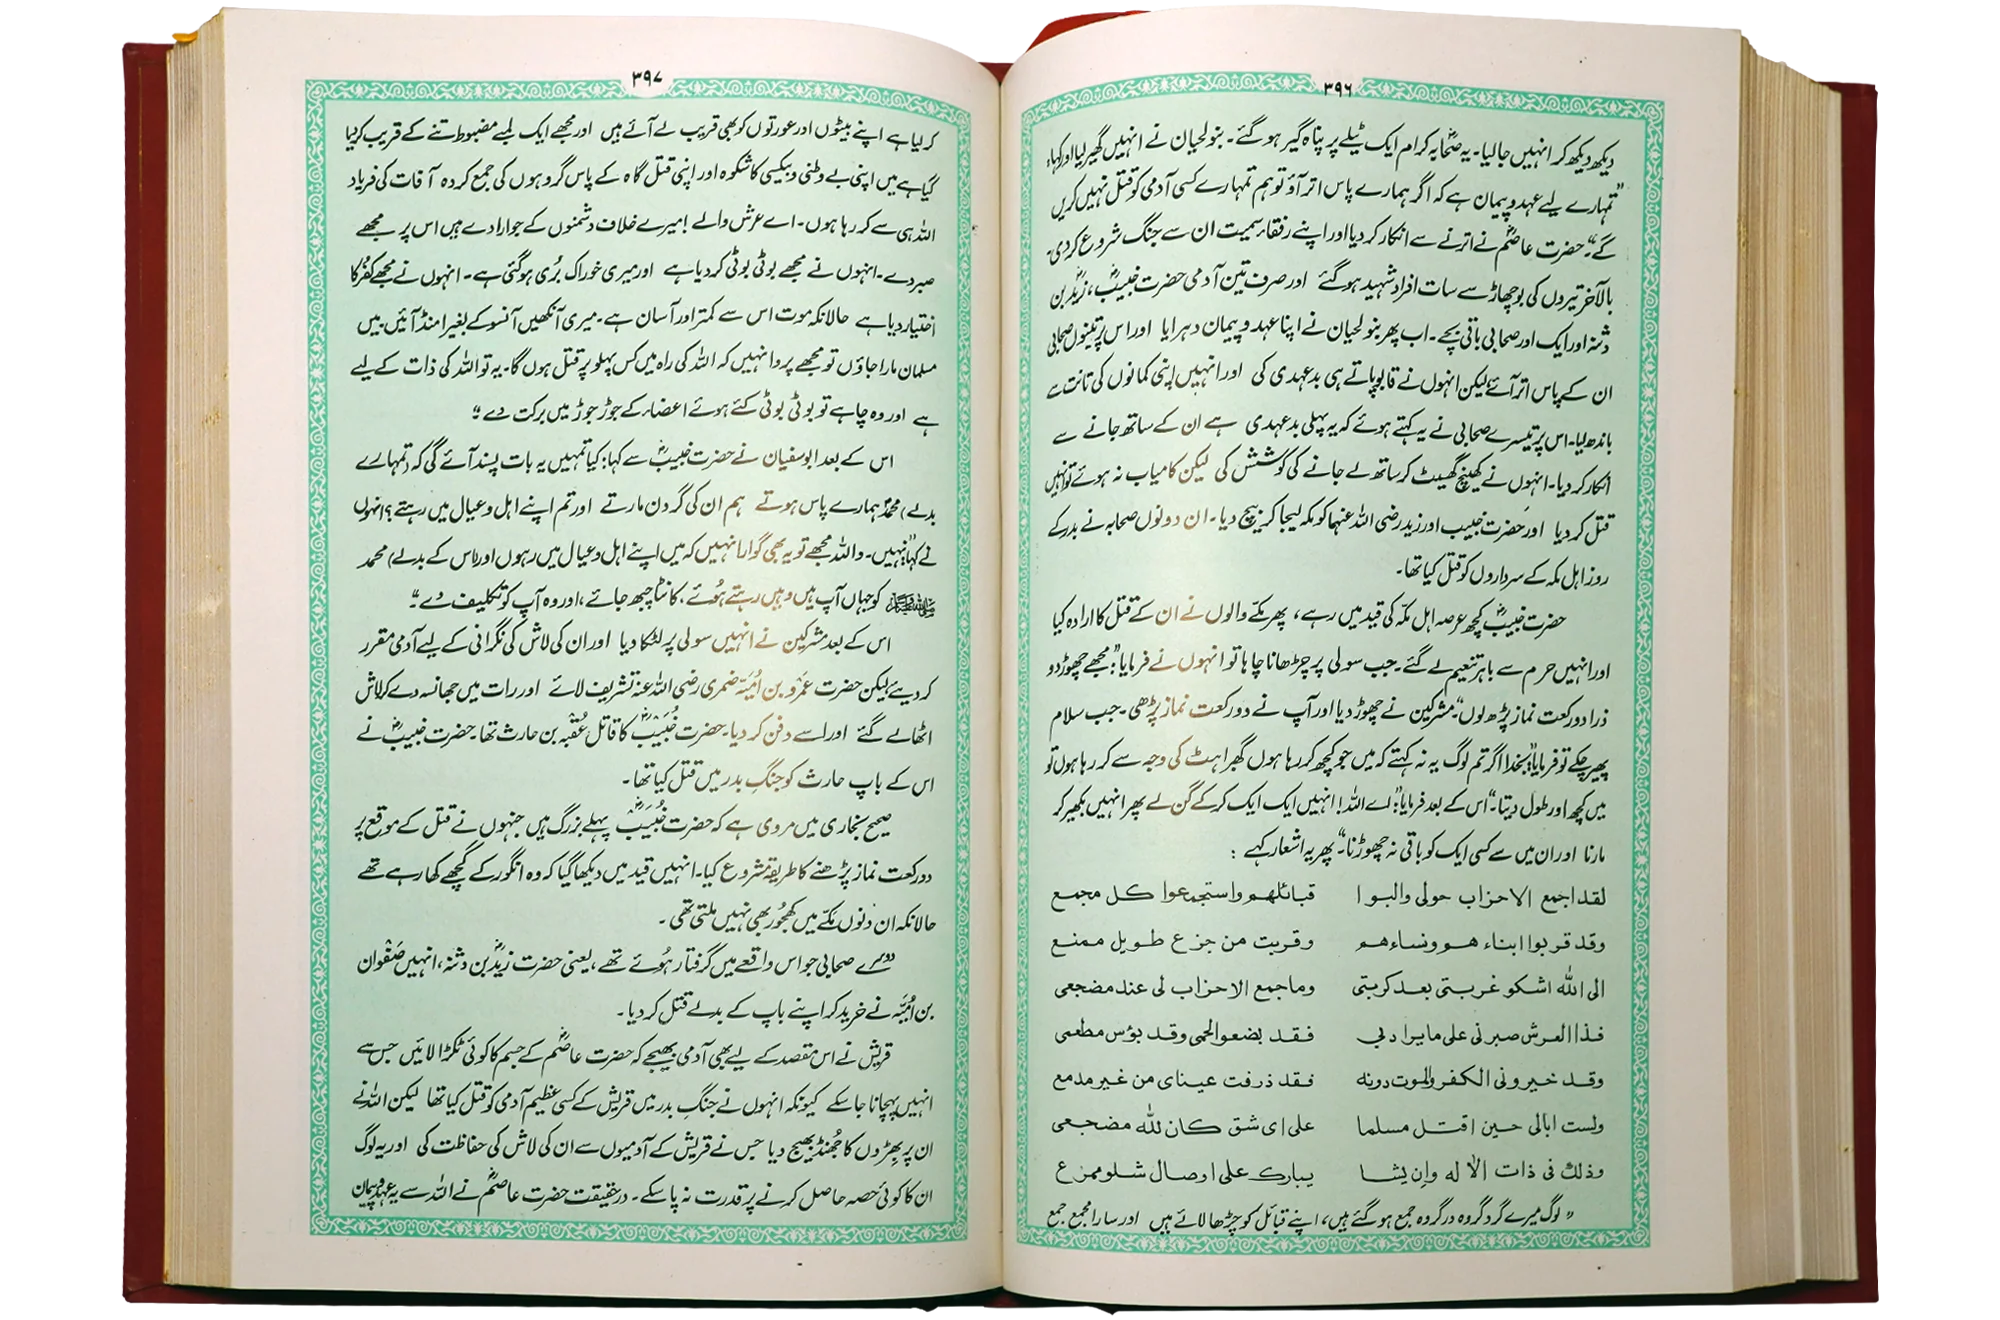 ۳۹۶
دیکھ دیکھ کر انہیں جالیا۔ یہ صحابہ کرام ایک ٹیلے پر پناہ گیر ہو گئے۔ بنو لحیان نے انہیں گھیر لیا اور کہا،
”تمہارے لیے عہد و پیمان ہے کہ اگر ہمارے پاس اتر آؤ تو ہم تمہارے کسی آدمی کو قتل نہیں کریں
گے“۔ حضرت عاصمؓ نے اترنے سے انکار کر دیا اور اپنے رفقاء سمیت ان سے جنگ شروع کر دی۔
بالآخر تیروں کی بوچھاڑ سے سات افراد شہید ہو گئے اور صرف تین آدمی حضرت خبیبؓ، زیدؓ بن
دثنہ اور ایک اور صحابی باقی بچے۔ اب پھر بنو لحیان نے اپنا عہد و پیمان دہرایا اور اس پر تینوں صحابی
ان کے پاس اتر آئے لیکن انہوں نے قابو پاتے ہی بدعہدی کی اور انہیں اپنی کمانوں کی تانت سے
باندھ لیا۔ اس پر تیسرے صحابی نے یہ کہتے ہوئے کہ یہ پہلی بدعہدی ہے ان کے ساتھ جانے سے
انکار کر دیا۔ انہوں نے کھینچ گھسیٹ کر ساتھ لے جانے کی کوشش کی لیکن کامیاب نہ ہوئے تو انہیں
قتل کر دیا اور حضرت خبیب اور زید رضی اللہ عنہما کو مکہ لیجا کر بیچ دیا۔ ان دونوں صحابہ نے بدر کے
روز اہل مکہ کے سرداروں کو قتل کیا تھا۔
حضرت خبیبؓ کچھ عرصہ اہل مکہ کی قید میں رہے، پھر مکّے والوں نے ان کے قتل کا ارادہ کیا
اور انہیں حرم سے باہر تنعیم لے گئے۔ جب سولی پر چڑھانا چاہا تو انہوں نے فرمایا: ”مجھے چھوڑ دو
ذرا دو رکعت نماز پڑھ لوں“۔ مشرکین نے چھوڑ دیا اور آپ نے دو رکعت نماز پڑھی۔ جب سلام
پھیر چکے تو فرمایا: ”بخدا اگر تم لوگ یہ نہ کہتے کہ میں جو کچھ کر رہا ہوں گھبراہٹ کی وجہ سے کر رہا ہوں تو
میں کچھ اور طول دیتا۔“ اس کے بعد فرمایا: ”اے اللہ! انہیں ایک ایک کر کے گن لے پھر انہیں بکھیر کر
مارنا اور ان میں سے کسی ایک کو باقی نہ چھوڑنا۔“ پھر یہ اشعار کہے :
لقد اجمع الاحزاب حولی والبوا قبائلهم واستجمعوا کل مجمع
وقد قربوا ابناءهم ونساءهم وقربت من جزع طویل ممنع
الی اللہ اشکو غربتی بعد کربتی وما جمع الاحزاب لی عند مضجعی
فذا العرش صبرنی علی ما یراد بی فقد بضعوا لحمی وقد بؤس مطعمی
وقد خیرونی الکفر والموت دونه فقد ذرفت عینای من غیر مدمع
ولست ابالی حین اقتل مسلما علی ای شق کان للہ مضجعی
وذلک فی ذات الالہ وان یشا یبارک علی اوصال شلو ممزع
”لوگ میرے گرد گروہ در گروہ جمع ہو گئے ہیں، اپنے قبائل کو چڑھا لائے ہیں اور سارا مجمع جمع
۳۹۷
کر لیا ہے اپنے بیٹوں اور عورتوں کو بھی قریب لے آئے ہیں اور مجھے ایک لمبے مضبوط تنے کے قریب کر دیا
گیا ہے میں اپنی بے وطنی و بیکسی کا شکوہ اور اپنی قتل گاہ کے پاس گروہوں کی جمع کردہ آفات کی فریاد
اللہ ہی سے کر رہا ہوں۔ اے عرش والے! میرے خلاف دشمنوں کے جو ارادے ہیں اس پر مجھے
صبر دے۔ انہوں نے مجھے بوٹی بوٹی کر دیا ہے اور میری خوراک بُری ہو گئی ہے۔ انہوں نے مجھے کفر کا
اختیار دیا ہے حالانکہ موت اس سے کمتر اور آسان ہے۔ میری آنکھیں آنسو کے بغیر امنڈ آئیں میں
مسلمان مارا جاؤں تو مجھے پروا نہیں کہ اللہ کی راہ میں کس پہلو پر قتل ہوں گا۔ یہ تو اللہ کی ذات کے لیے
ہے اور وہ چاہے تو بوٹی بوٹی کئے ہوئے اعضاء کے جوڑ جوڑ میں برکت دے۔“
اس کے بعد ابوسفیان نے حضرت خبیبؓ سے کہا: کیا تمہیں یہ بات پسند آئے گی کہ (تمہارے
بدلے) محمدؐ ہمارے پاس ہوتے ہم ان کی گردن مارتے اور تم اپنے اہل و عیال میں رہتے؟ انہوں
نے کہا: ”نہیں۔ واللہ مجھے تو یہ بھی گوارا نہیں کہ میں اپنے اہل و عیال میں رہوں اور (اس کے بدلے) محمد
ﷺ کو جہاں آپ ہیں وہیں رہتے ہُوئے، کانٹا چبھ جائے، اور وہ آپ کو تکلیف دے۔“
اس کے بعد مشرکین نے انہیں سولی پر لٹکا دیا اور ان کی لاش کی نگرانی کے لیے آدمی مقرر
کر دیئے لیکن حضرت عمروؓ بن اُمیّہ ضمری رضی اللہ عنہ تشریف لائے اور رات میں جھانسہ دے کر لاش
اٹھا لے گئے اور اسے دفن کر دیا۔ حضرت خُبَیْبؓ کا قاتل عُقْبہ بن حارث تھا۔ حضرت خبیبؓ نے
اس کے باپ حارث کو جنگِ بدر میں قتل کیا تھا۔
صحیح بخاری میں مروی ہے کہ حضرت خُبَیبؓ پہلے بزرگ ہیں جنہوں نے قتل کے موقع پر
دو رکعت نماز پڑھنے کا طریقہ مشروع کیا۔ انہیں قید میں دیکھا گیا کہ وہ انگور کے گچھے کھا رہے تھے
حالانکہ ان دنوں مکّے میں کھجور بھی نہیں ملتی تھی۔
دوسرے صحابی جو اس واقعے میں گرفتار ہُوئے تھے، یعنی حضرت زیدؓ بن دثنہ، انہیں صَفْوان
بن اُمیّہ نے خرید کر اپنے باپ کے بدلے قتل کر دیا۔
قریش نے اس مقصد کے لیے بھی آدمی بھیجے کہ حضرت عاصمؓ کے جسم کا کوئی ٹکڑا لائیں جس سے
انہیں پہچانا جا سکے کیونکہ انہوں نے جنگِ بدر میں قریش کے کسی عظیم آدمی کو قتل کیا تھا لیکن اللہ نے
ان پر بِھڑوں کا جُھنڈ بھیج دیا جس نے قریش کے آدمیوں سے ان کی لاش کی حفاظت کی اور یہ لوگ
ان کا کوئی حصہ حاصل کرنے پر قدرت نہ پا سکے۔ درحقیقت حضرت عاصمؓ نے اللہ سے یہ عہد و پیمان